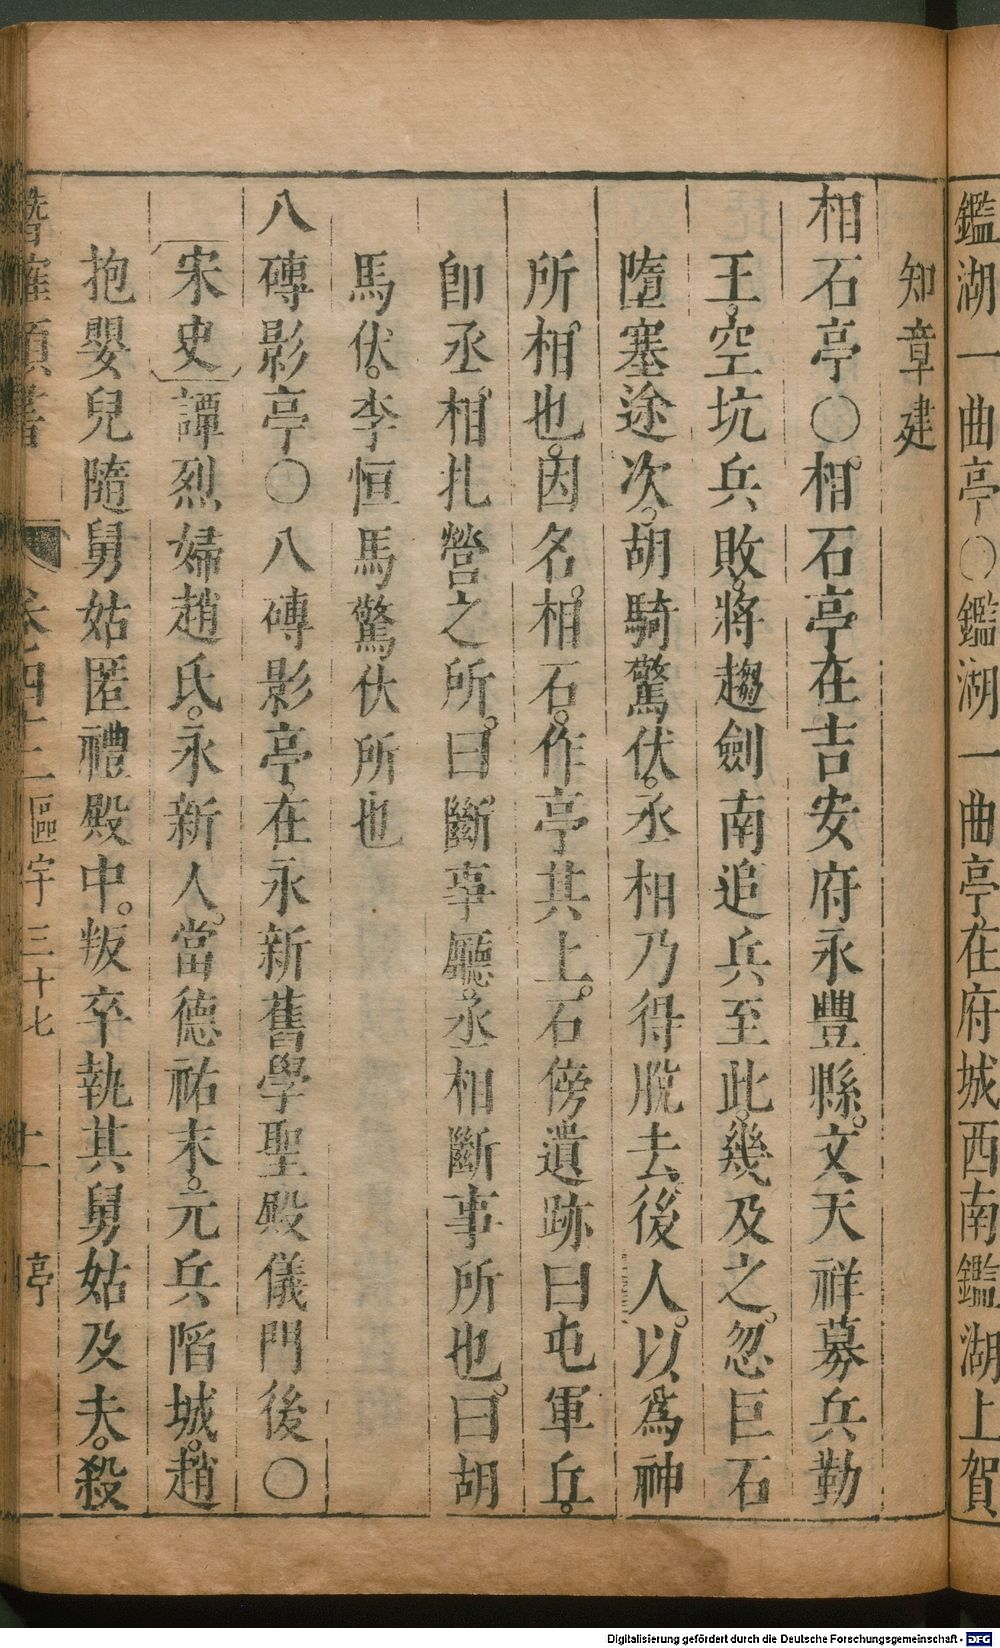 鑑湖一曲亭〇鑑湖一曲亭在府城西南鑑湖上賀
知章建
相石亭〇相石亭在吉安府永豐縣。文天祥募兵勤
王。空坑兵敗。將趨劍南追兵至此。幾及之。忽巨石
墮塞途次。胡騎驚伏。丞相乃得脫去。後人。以爲神
所相也。因名。相石。作亭其上。石傍遺跡曰屯軍丘。
卽丞相扎營之所。曰斷事廳。丞相斷事所也。曰胡
馬伏。李恒馬驚伏所也
八磚影亭〇八磚影亭在永新舊學聖殿儀門後〇
宋史譚烈婦趙氏。永新人。當德祐末。元兵陷城。趙
抱嬰兒隨舅姑匿禮殿中。叛卒執其舅姑及夫。殺
潛確類書 卷四十二區宇三十七 十一 亭
Digitalisierung gefördert durch die Deutsche Forschungsgemeinschaft - DFG